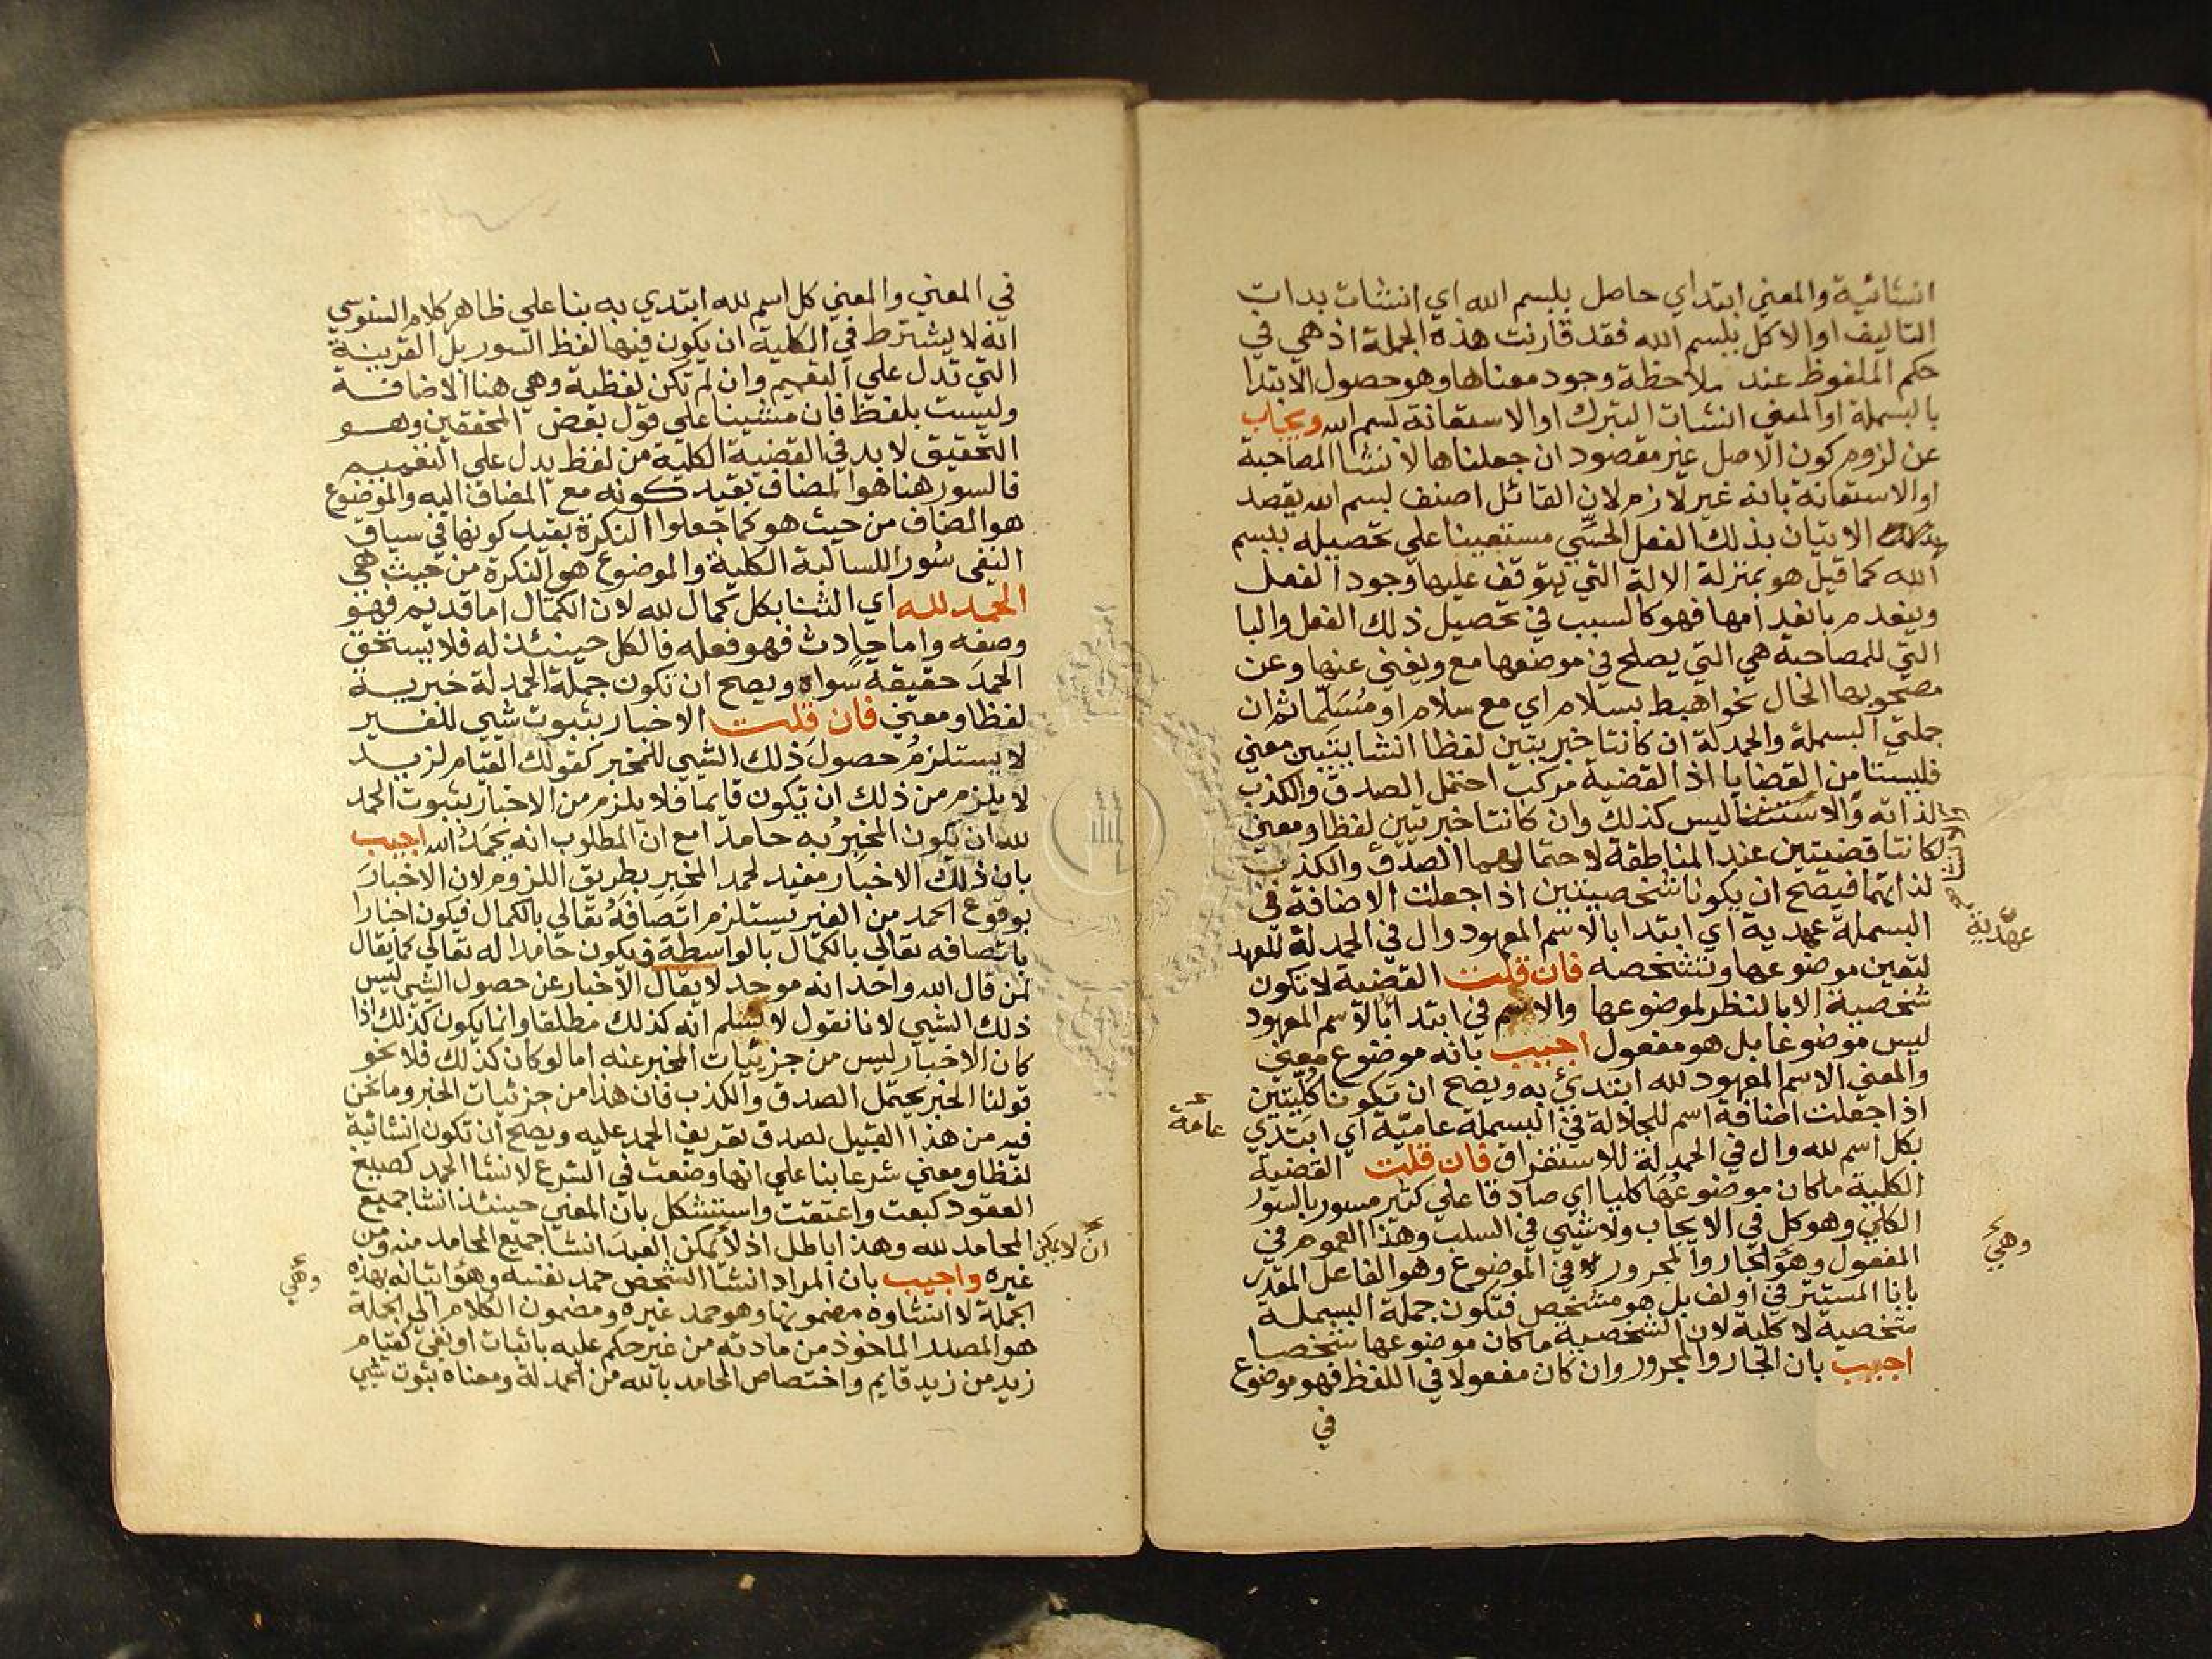 انشائية والمعني ابتداي حاصل ببسم الله اي انشات بدات
التاليف او الاكل ببسم الله فقد قارنت هذه الجملة اذ هي في
حكم الملفوظ عند ملاحظة وجود معناها وهو حصول الابتدا
بالبسملة او المعني انشات التبرك او الاستعانة بسم الله ويجاب
عن لزوم كون الاصل غير مقصود ان جعلناها لانشا المصاحبة
او الاستعانة بانه غير لازم لان القائل اصنف بسم الله يقصد
الاتيان بذلك الفعل الحسي مستعينا علي تحصيله ببسم
الله كما قيل هو بمنزلة الالة التي يتوقف عليها وجود الفعل
وينعدم بانعدامها فهو كالسبب في تحصيل ذلك الفعل والبا
التي للمصاحبة هي التي يصلح في موضعها مع ويغني عنها وعن
مصحوبها الحال نحو اهبط بسلام اي مع سلام او مُسَلَّما ثم ان
جملتي البسملة والحمدلة ان كانتا خبريتين لفظا انشايتين معني
فليستا من القضايا اذ القضية مركب احتمل الصدق والكذب
لذاته والاستثنا ليس كذلك وان كانتا خبريتين لفظا ومعني
لكانتا قضيتين عند المناطقة لاحتمالهما الصدق والكذب
لذاتهما فيصح ان يكونا شخصيتين اذا جعلت الاضافة في
البسملة عهدية اي ابتدا بالاسم المعهود وال في الحمدلة للعهد
عهدية
لتعين موضوعها وتشخصه فان قلت القضية لا تكون
شخصية الا بالنظر لموضوعها والاسم في ابتدا بالاسم المعهود
ليس موضوعا بل هو مفعول اجيب بانه موضوع معني
والمعني الاسم المعهود لله ابتدئ به ويصح ان تكونا كليتين
اذا جعلت اضافة اسم للجلالة في البسملة عامية اي ابتدي
عامة
بكل اسم لله وال في الحمدلة للاستغراق فان قلت القضية
الكلية ما كان موضوعها كليا اي صادقا علي كثير مسور بالسور
الكلي وهو كل في الايجاب ولا شيي في السلب وهذا العموم في
وهي
المفعول وهو الجار والمجرور لا في الموضوع وهو الفاعل المقدر
بانا المستتر في اولف بل هو مشخص فتكون جملة البسملة
شخصية لا كلية لان الشخصية ما كان موضوعها شخصا
اجيب بان الجار والمجرور وان كان مفعولا في اللفظ فهو موضوع
في
في المعني والمعني كل اسم لله ابتدي به بنا علي ظاهر كلام السنوسي
انه لا يشترط في الكلية ان يكون فيها لفظ السور بل القرينة
التي تدل علي التعميم وان لم تكن لفظية وهي هنا الاضافة
وليست بلفظ فان مشينا علي قول بعض المحققين وهو
التحقيق لا بد في القضية الكلية من لفظ يدل علي التعميم
فالسور هنا هو المضاف بقيد كونه مع المضاف اليه والموضوع
هو المضاف من حيث هو كما جعلوا النكرة بقيد كونها في سياق
النفي سُورا للسالبة الكلية والموضوع هو النكرة من حيث هي
الحمد لله اي الثنا بكل كمال لله لان الكمال اما قديم فهو
وصفه واما حادث فهو فعله فالكل حينئذ له فلا يستحق
الحمدَ حقيقة سواه ويصح ان تكون جملة الحمدلة خبرية
لفظا ومعني فان قلت الاخبار بثبوت شيي للغير
لا يستلزم حصول ذلك الشيي للمخبر كقولك القيام لزيد
لا يلزم من ذلك ان تكون قايما فلا يلزم من الاخبار بثبوت الحمد
لله ان يكون المخبِرُ به حامدا مع ان المطلوب انه يحمَدُ الله اجيب
بان ذلك الاخبار مفيد لحمد المخبر بطريق اللزوم لان الاخبارَ
بوقوع الحمد من الغير يستلزم اتصافهُ تعالي بالكمال فيكون اخبارا
باتصافه تعالي بالكمال بالواسطة فيكون حامدا له تعالي كما يقال
لمن قال الله واحد انه موحد لا يقال الاخبار عن حصول الشيي ليس
ذلك الشيي لانا نقول لا يسلم انه كذلك مطلقا وانما يكون كذلك اذا
كان الاخبار ليس من جزئيات المخبر عنه اما لو كان كذلك فلا نحو
قولنا الخبر يحتمل الصدق والكذب فان هذا من جزئيات الخبر وما نحن
فيه من هذا القبيل لصدق تعريف الحمد عليه ويصح ان تكون انشائية
لفظا ومعني شرعا بنا علي انها وضعت في الشرع لانشا الحمد كصيغ
العقود كبعت واعتقت واستشكل بان المعني حينئذ انشا جميع
المحامد لله وهذا باطل اذ لا يمكن العبدَ انشا جميع المحامد منه ومن
ان لا يمكن
غيره واجيب بان المراد انشا الشخص حمد نفسه وهو اتيانه بهذه
وهي
الجملة لا انشاوه مضمونها وهو حمد غيره ومضمون الكلام الي الجملة
هو المصدر الماخوذ من مادته من غير حكم عليه باثبات او نفي كقيام
زيد من زيد قايم واختصاص المحامد بالله من الحمدلة ومعناه ثبوت شيي